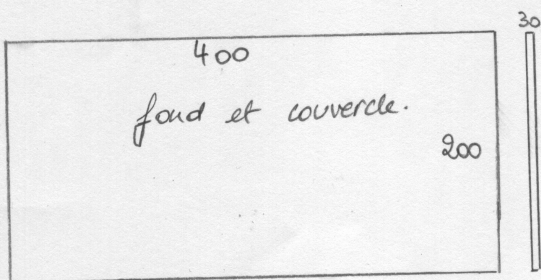 30
400
fond et couvercle.
200